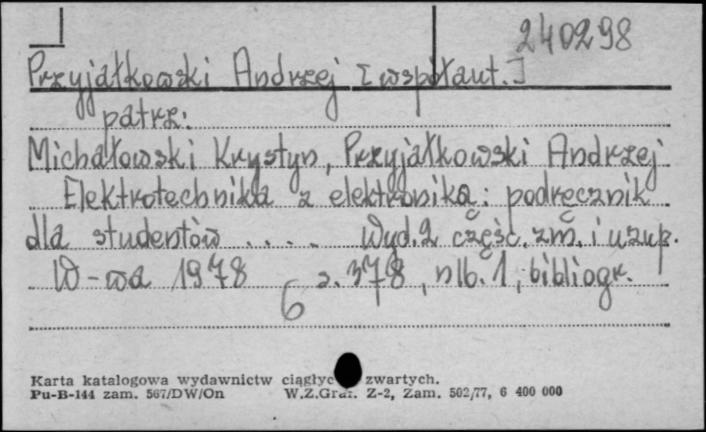 240298
Przyjałkowski Andrzej [współaut.]
patrz:
Michałowski Krystyn, Przyjałkowski Andrzej
Elektrotechnika z elektroniką: podręcznik
dla studentów .... Wyd. 2 częśc. zm. i uzup.
W-wa 1978 s. 378, nlb. 1, bibliogr.
6
Karta katalogowa wydawnictw ciągłyc zwartych.
Pu-B-144 zam. 567/DW/On W.Z.Graf. Z-2, Zam. 502/77, 6 400 000